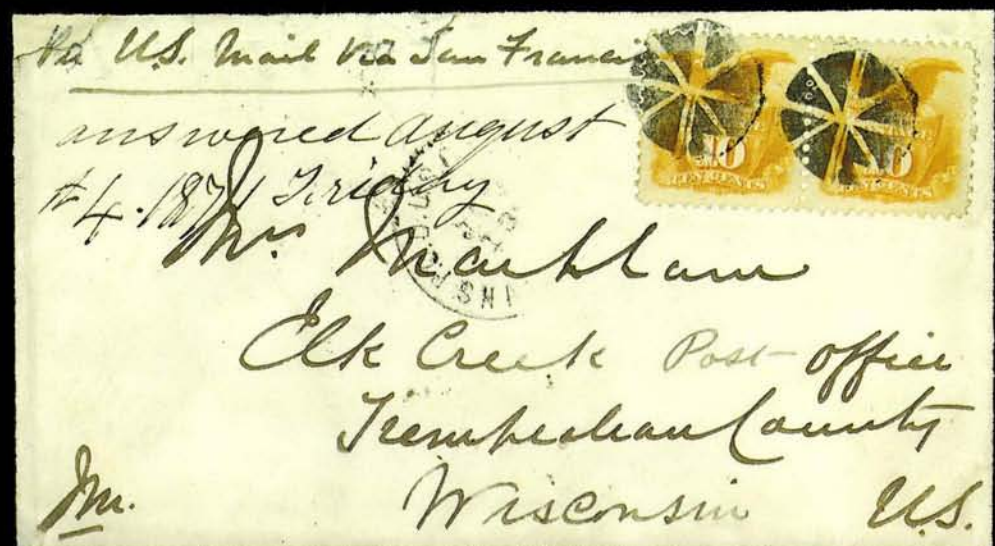 Per U.S. Mail via San Franci
answered august
#4. 1871 Friday
Mrs Markham
Elk Creek Post office
Trempealeau County
Wisconsin U.S.
10 10
TEN CENTS TEN CENTS